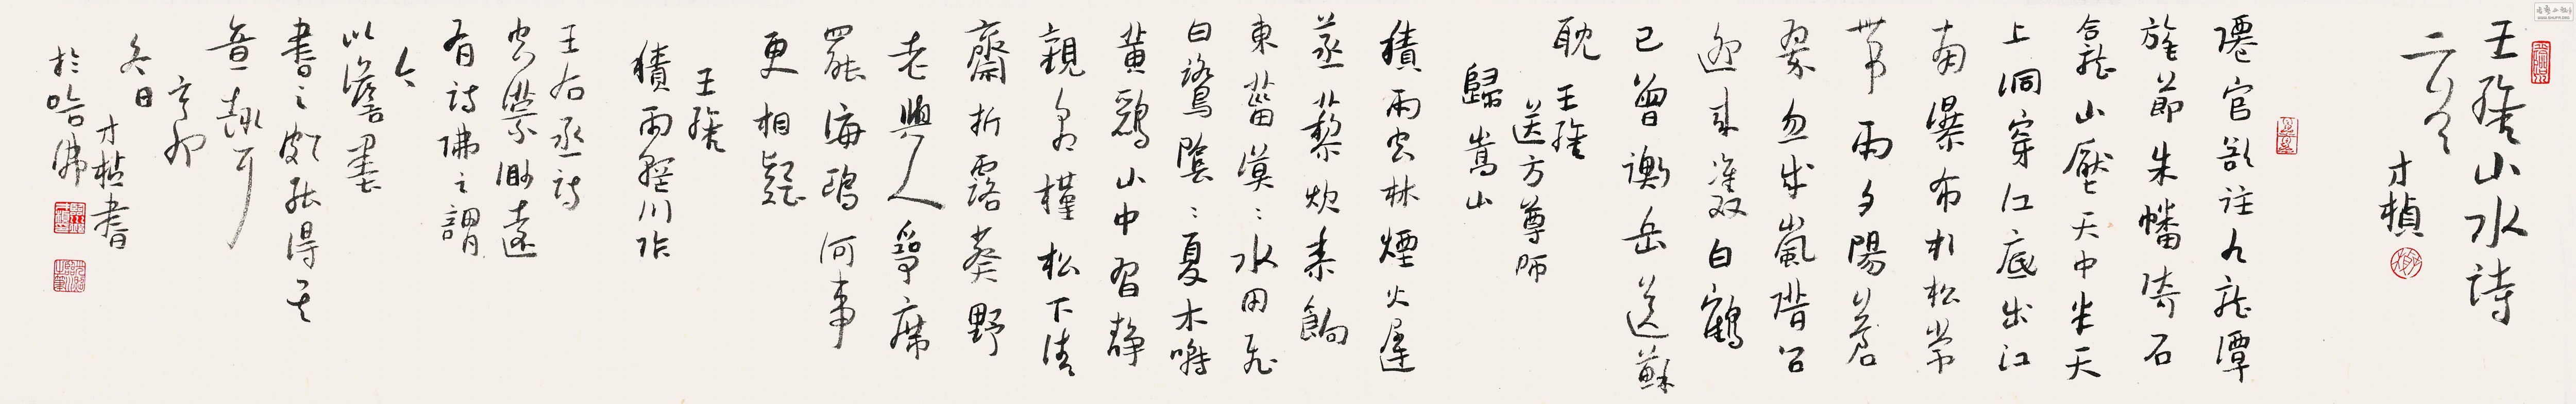 王維山水詩
二首
才楨
僊官欲往九龍潭
旄節朱幡倚石
龕山壓天中半天
上洞穿江底出江
南瀑布杉松常
帶雨夕陽蒼
翠忽成嵐借問
迎來雙白鶴
已曾衡岳送蘇
耽
王維
送方尊師
歸嵩山
積雨空林煙火遲
蒸藜炊黍餉
東菑漠〻水田飛
白鷺陰〻夏木囀
黃鸝山中習靜
觀朝槿松下清
齋折露葵野
老與人爭席
罷海鷗何事
更相疑
王維
積雨輞川作
王右丞詩
遠
有詩佛之謂
今
以澹墨
書之頗能得其
意趣耳
卯
冬日
才楨書
於